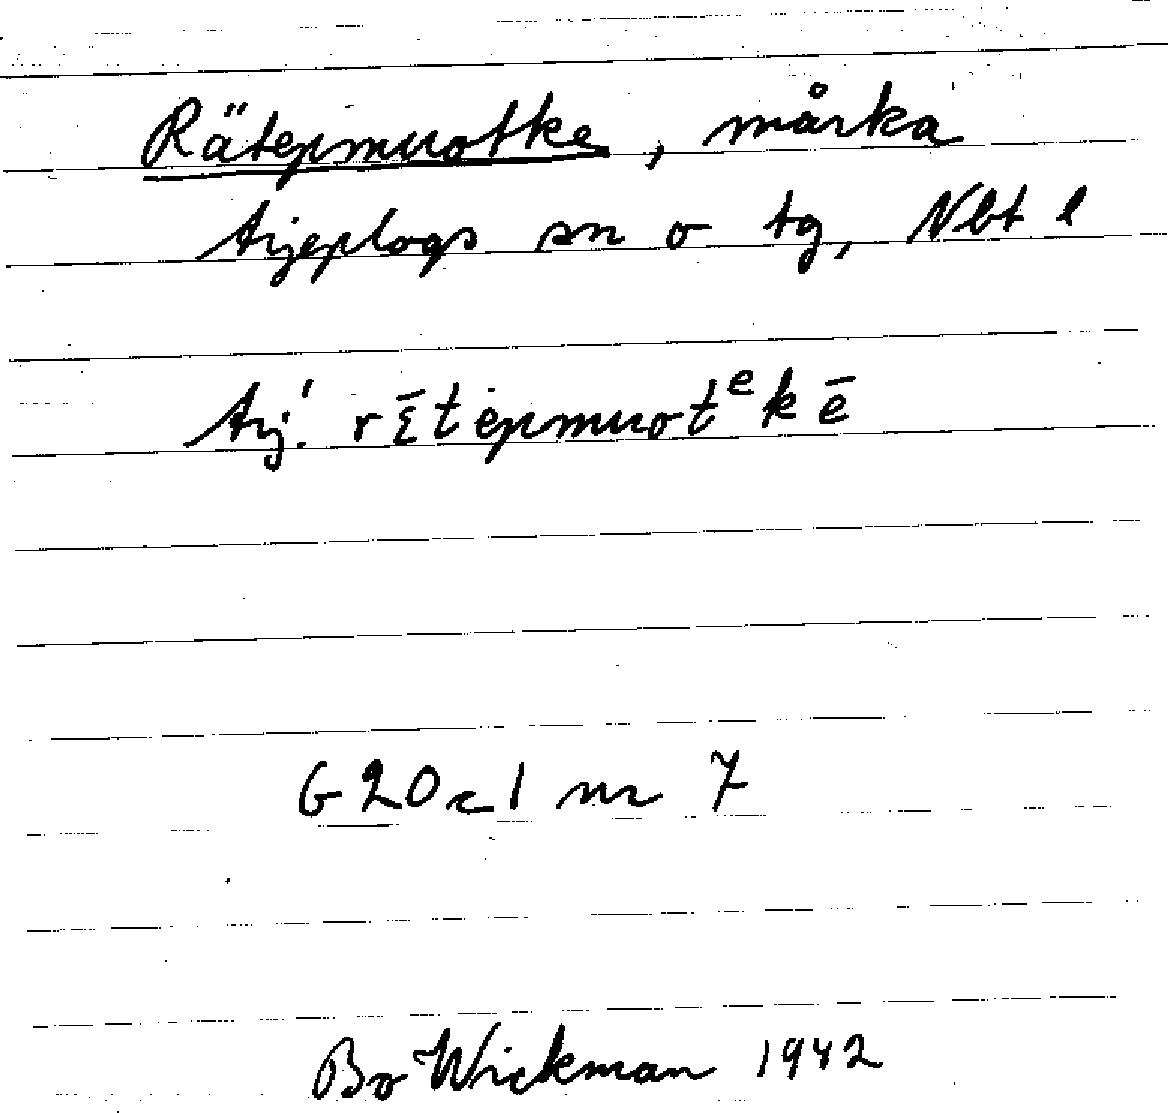 Rätepmuotke, mårka
Arjeplogs sn o tg, Nbt l
Arj. rɛ̄tepmuotᵉkē
G20c1 nr 7
Bo Wickman 1942